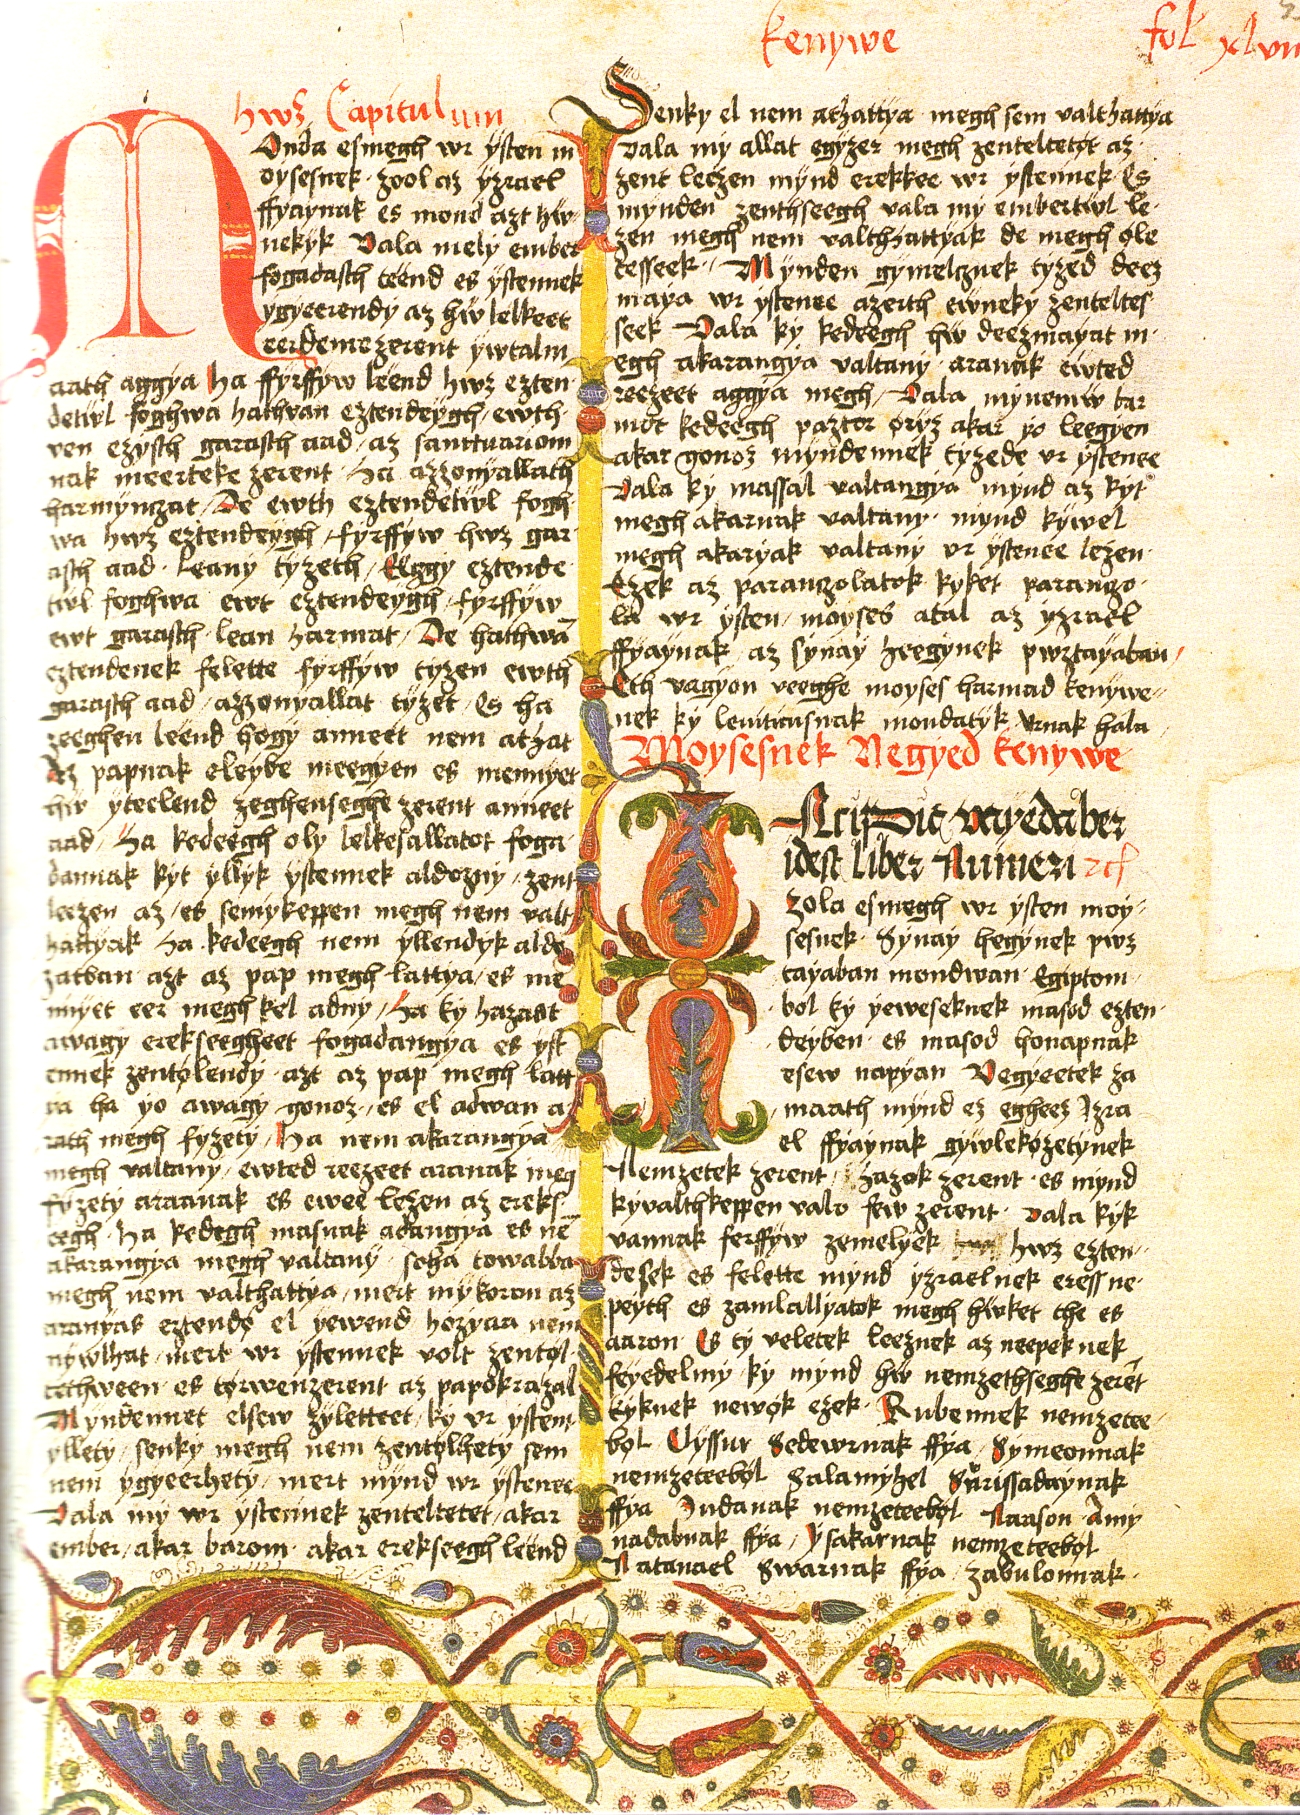 kenywe
fol xlvii
hwz Capitulum
Monda esmegh wr ÿsten m
oysesnek · zool az ÿzrael
ffyaynak es mond azt hw
nekÿk Vala mely ember
fogadasth teend es ÿstennek
ygyeerendÿ az hw lelkeet
eerdeme zerent ÿwtalm
arath aggya Ha ffyrffyw leend hwz ezten
detwl foghwa hathvan eztendeÿgh / ewth
ven ezÿsth garasth aad / az sanctuariom
nak meerteke zerent · Ha azzonÿallath
harmÿnczat / De ewth eztendetwl fogh
wa hwz eztendeÿgh / fyrffyw hwz gar
asth aad · Leanÿ tÿzeth / Eggÿ eztende
twl foghwa ewt eztendeÿgh / fyrffyw
ewt garasth · lean harmat / De hathwā
eztendenek felette fyrffyw tÿzen ewth
garasth aad / azzonyallat tÿzet / Es ha
zeeghen leend hogÿ anneet nem athat
Az papnak eleÿbe meegÿen es mennÿet
hw ÿteelend zeghenseghe zerent anneet
aad / Ha kedeegh oly lelkesallatot foga
dannak kÿt ÿllÿk ÿstennek aldoznÿ / zent
leezen az / es semÿkeppen megh nem valt
hattÿak Ha kedeegh nem ÿllendÿk aldo
zatban azt az pap megh lattÿa / es me
nnÿet eer megh kel adnÿ / Ha kÿ hazaat
awagÿ erekseegheet fogadangÿa es ÿst
ennek zentólendÿ · azt az pap megh latt
ÿa ha ÿo awagÿ gonoz / es el adwan a
rath megh fÿzetÿ / Ha nem akarangÿa
megh valtanÿ / ewted reezeet aranak meg
fÿzetÿ araanak es ewee lezen az ereks
eegh · Ha kedegh masnak adangÿa es nē
akarangÿa megh valtanÿ · soha towabba
megh nem valthattÿa / mert mÿkoron az
aranÿas eztendó el ÿewend hozÿaa nem
nÿwlhat / mert wr ÿstennek volt zentól
tethween · es tórwenzerent az papokrazal
Mÿndennet elsew zÿletteet / kÿ vr ÿstent
ÿlletÿ / senkÿ megh nem zentólhetÿ sem
nem ÿgyeerhetÿ / mert mÿnd wr ÿstenee
Vala mÿ wr ÿstennek zenteltetet / akar
ember / akar barom · akar erekseegh leend
Senkÿ el nem athattÿa · megh sem valthattÿa
Vala mÿ allat egÿzer megh zenteltetÿt az
zent leezen mÿnd erekkee wr ÿstennek Es
mÿnden zenthseegh vala mÿ embertwl le
zen megh nem valthhattÿak de megh óle
tesseek / Mÿnden gÿmelcznek tÿzed deez
maÿa wr ÿstenee azerth ewnekÿ zenteltes
seek Vala kÿ kedeegh hw deezmaÿat m
egh akarangÿa valtanÿ · aranak ewted
reezeet aggÿa megh / Vala mÿnemw bar
mót kedeegh paztor óriz akar ÿo leegÿen
akar gonoz mÿndennek tÿzede vr ÿstenee
Vala kÿ massal valtangÿa mÿnd az kÿt
megh akarnak valtanÿ · mÿnd kÿwel
megh akarÿak valtanÿ vr ÿstenee lezen ·
Ezek az paranczolatok kÿket paranczo
la wr ÿsten / moyses atal az ÿzrael
ffyaÿnak az sÿnaÿ heegÿnek pwztaÿaban /
Eth vagÿon veeghe moyses harmad kenÿwe
nek kÿ leuiticusnak mondatÿk Vrnak hala
Moysesnek Negyed kenywe
Incipit Vayedaber
idest liber Numeri
zola esmegh wr ÿsten moy
sesnek · Sÿnaÿ hegÿnek pwz
taÿaban mondwan · Egiptom
bol kÿ ÿeweseknek masod ezten
deÿben · es masod honapnak
esew napÿan Vegÿeetek za
marath mÿnd ez egheez Izra
el ffyaÿnak gÿwlekózetÿnek
Nemzetek zerent / Hazok zerent · es mÿnd
kÿvalthkeppen valo few zerent · Vala kÿk
vannak ferffyw zemelÿek hwz ezten
desek es felette mÿnd ÿzraelnek eressne
peÿth es zamlallÿatok megh hwket the es
aaron · Es tÿ veletek leeznek az neepeknek
feÿedelmÿ · kÿ mÿnd hw nemzethseghe zerēt
kÿknek newók ezek · Rubennek nemzetee
ból Elyssur Sedewrnak ffya / Sÿmeonnak
nemzeteeból Salamÿhel Surissadaynak
ffya Iudanak nemzeteeból Naason Amÿ
nadabnak ffya / Ysakarnak nemzeteeból
Natanael Swarnak ffya / zabulonnak ·